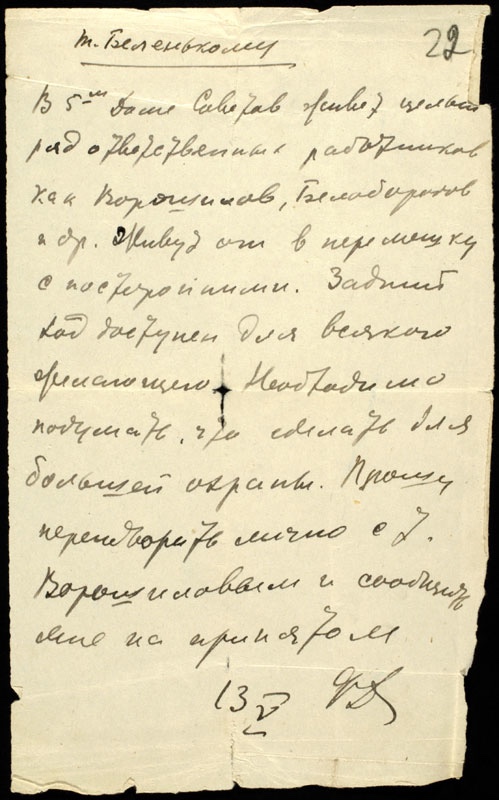 22
т. Беленькому
В 5ом Доме Советов живет целый
ряд ответственных работников
как Ворошилов, Белобородов
и др. Живут они в перемешку
с посторонними. Задний
ход доступен для всякого
желающего. Необходимо
подумать, что сделать для
большей охраны. Прошу
переговорить лично с т.
Ворошиловым и сообщить
мне о принятом
13/V ФД